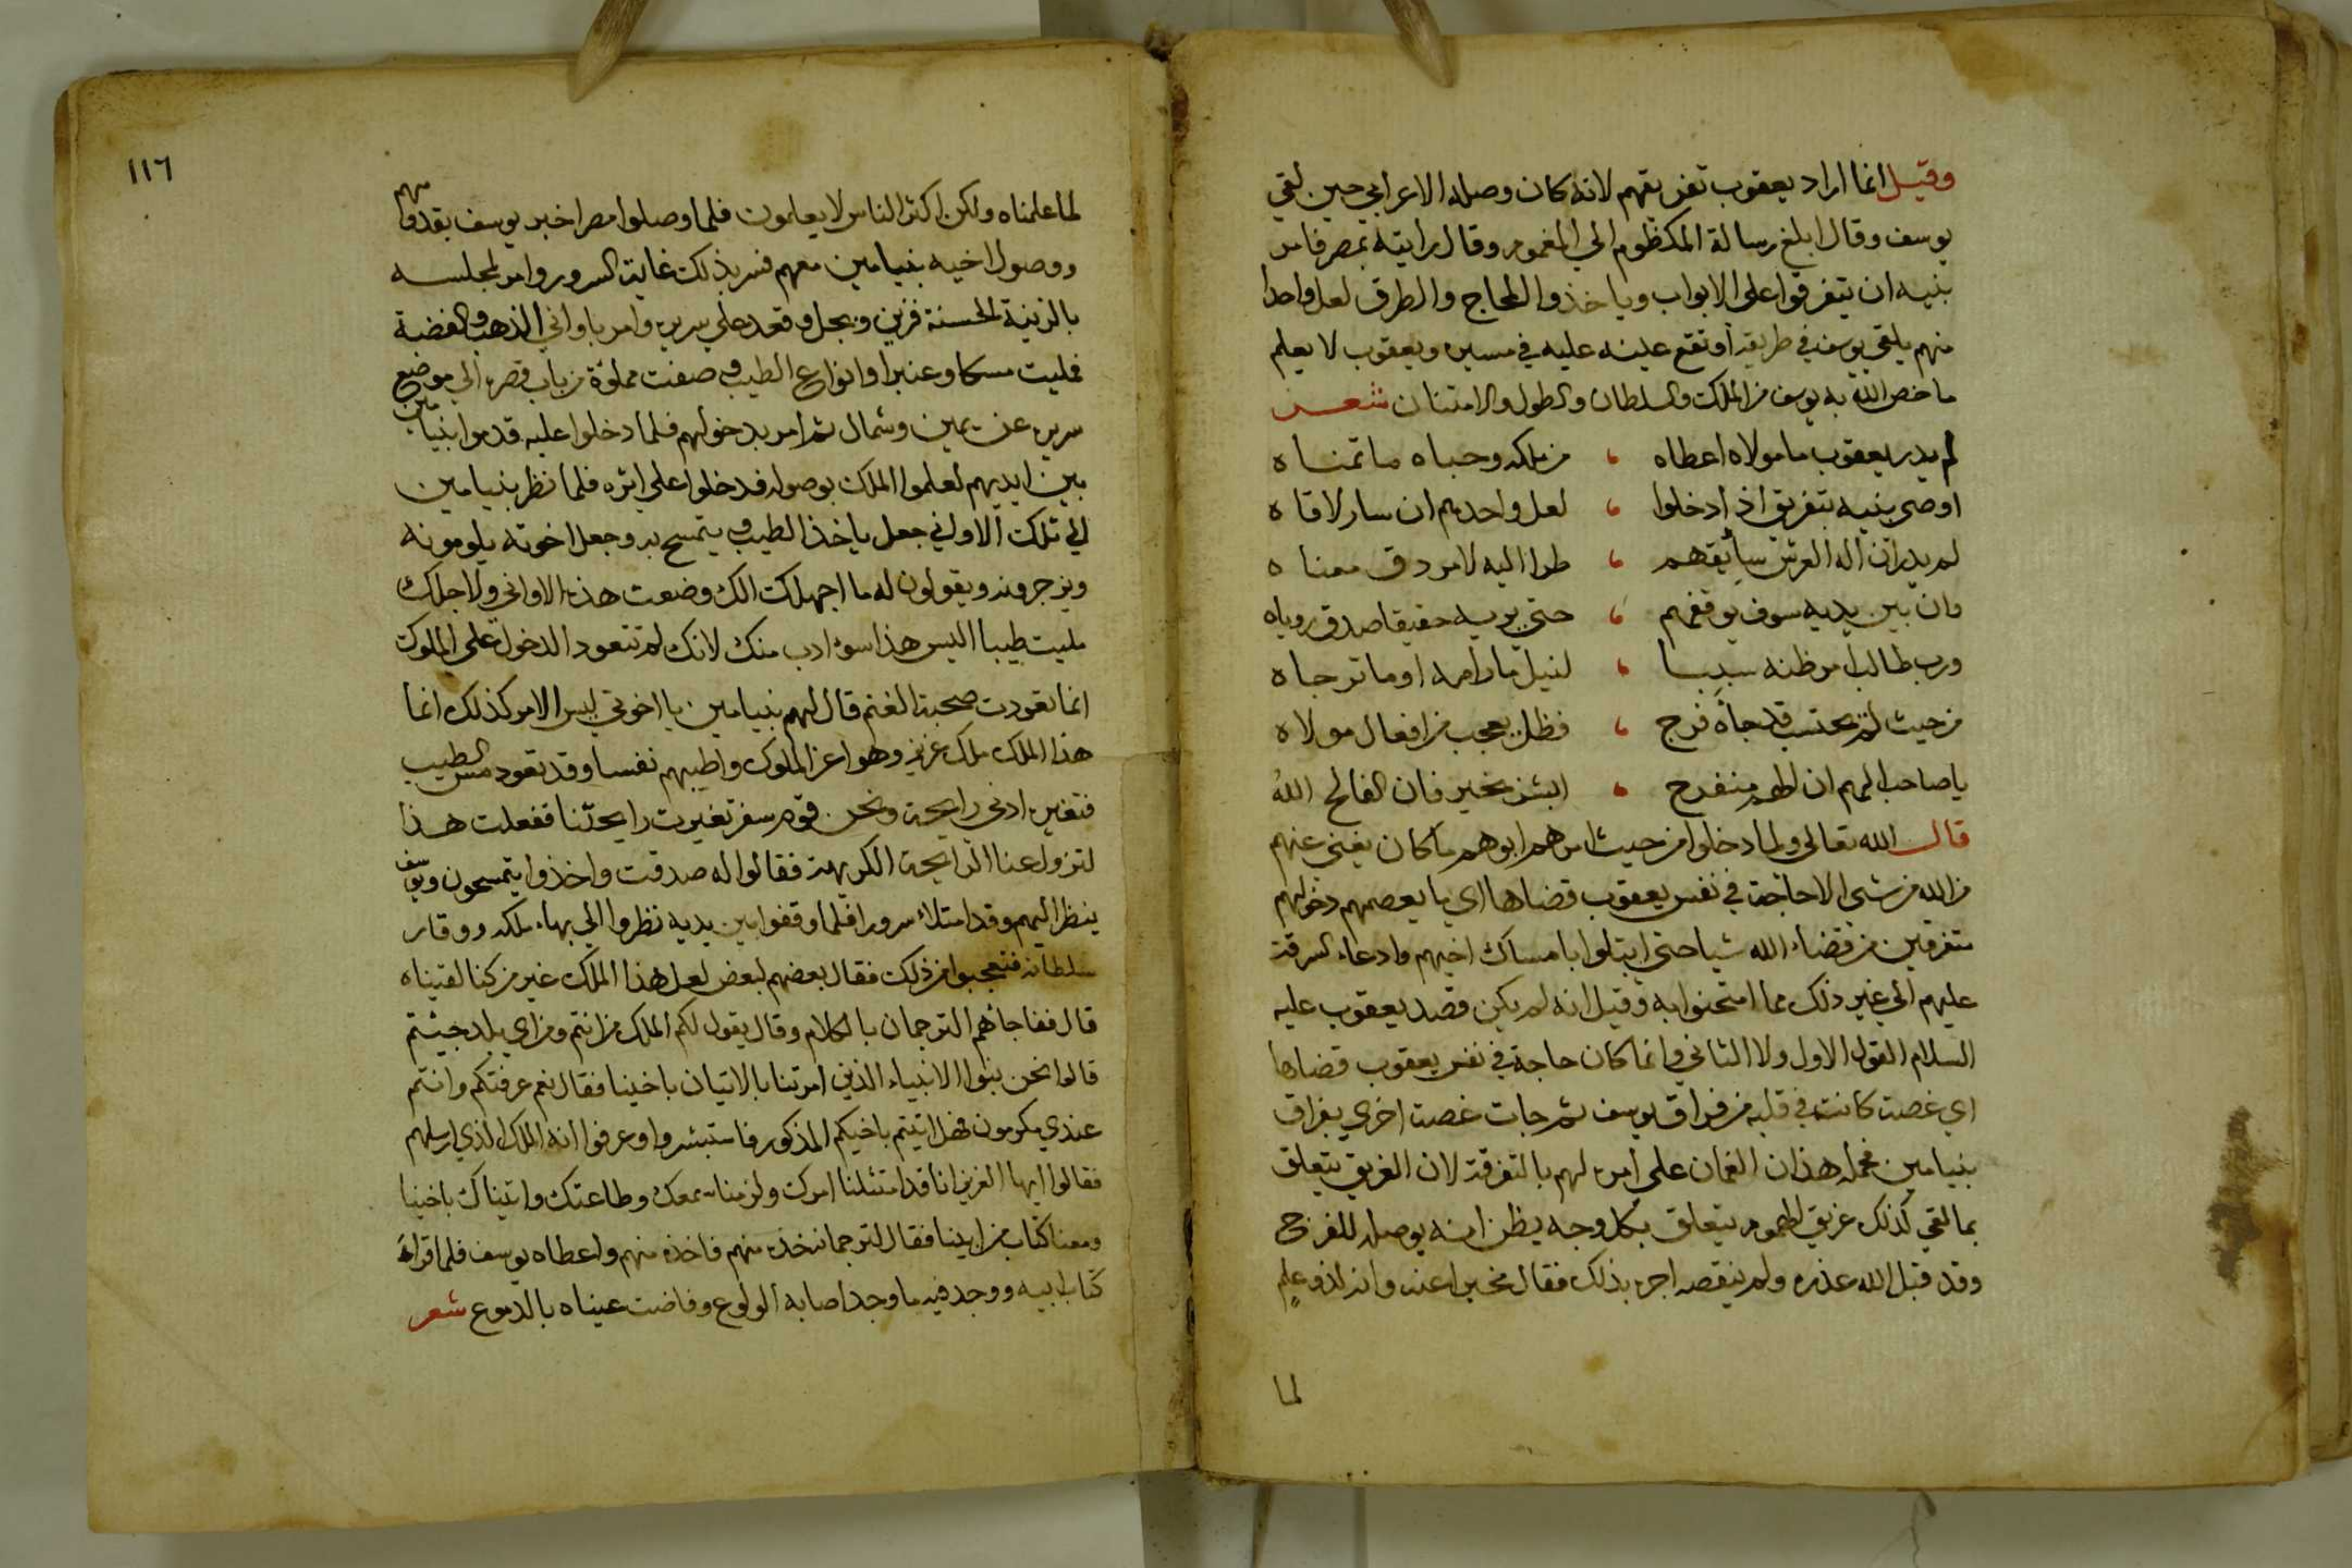 وقيل انما اراد يعقوب تفريقهم لانه كان وصله الاعرابي حين لقي
يوسف وقال ابلغ رسالة المكظوم الي المغموم وقال رايته بمصر فامر
بنيه ان يتفرقوا على الابواب وياخذوا الجاج والطرق لعل واحدا
منهم يلقي يوسف في طريقه او تقع عينه عليه في مسيره ويعقوب لا يعلم
ما خص الله به يوسف من الملك والسلطان والطول والامتنان شعر
لم يدر يعقوب ما مولاه اعطاه من ملكه وحباه ما تمناه
اوصى بنيه بتفريق اذا دخلوا لعل واحدهم ان سار لاقاه
لم يدر ان اله العرش سايقهم طرا اليه لامر دق معناه
وان بين يديه سوف يوقفهم حتي يريه حقيقا صدق روياه
ورب طالب امر ظنه سببا لنيل ما رامه او ما ترجاه
من حيث لم يحتسب قد جاه فرج فظل يعجب من افعال مولاه
يا صاحب الهم ان الهم منفرج ابشر بخير فان الفالح الله
قال الله تعالى ولما دخلوا من حيث امرهم ابوهم ما كان يغني عنهم
من الله من شي الا حاجة في نفس يعقوب قضاها اي ما يعصمهم دخولهم
متفرقين من قضاء الله شيا حتى ابتلوا بامساك اخيهم وادعاء السرقة
عليهم الي غير ذلك مما امتحنوا به وقيل انه لم يكن قصد يعقوب عليه
السلام القول الاول ولا الثاني وانما كان حاجة في نفس يعقوب قضاها
اي غصت كانت في قلبه من فراق يوسف ثم جات غصت اخري بفراق
بنيامين فحمله هذان الغمان على امره لهم بالتفرقة لان الغريق يتعلق
بما لقي كذلك غريق الهموم يتعلق بكل وجه يظن انه يوصله للفرج
وقد قبل الله عذره ولم ينقصه اجره بذلك فقال مخبرا عنه وانه لذو علم
لما
١١٦
لما علمناه ولكن اكثر الناس لا يعلمون فلما وصلوا مصر اخبر يوسف بقدومهم
ووصول اخيه بنيامين معهم فسر بذلك غاية السرور وامر لمجلسه
بالزينة الحسنة فزين وبجل وقعد على سريره وامر باواني الذهب والفضة
فمليت مسكا وعنبرا وانواع الطيب وصفت مملوة من باب قصره الي موضع
سريره عن يمين وشمال ثم امر بدخولهم فلما دخلوا عليه قدموا بنيامين
بين ايديهم لعلموا الملك بوصوله فدخلوا على اثره فلما نظر بنيامين
الي تلك الاواني جعل ياخذ الطيب ويتمسح به وجعل اخوته يلومونه
ويزجرونه ويقولون له ما اجهلك الك وضعت هذه الاواني ولاجلك
مليت طيبا اليس هذا سوء ادب منك لانك لم تتعود الدخول على الملوك
انما تعودت صحبة الغنم قال لهم بنيامين يا اخوتي ليس الامر كذلك انما
هذا الملك ملك عزيز وهو اعز الملوك واطيبهم نفسا وقد تعود مس الطيب
فتغيره ادني رايحة ونحن قوم سفر تغيرت رايحتنا ففعلت هذا
لتزول عنا الرايحة الكريهة فقالوا له صدقت واخذوا يتمسحون ويوسف
ينظر اليهم وقد امتلا سرورا فلما وقفوا بين يديه نظروا الي بهاء ملكه ووقار
سلطانه فتعجبوا من ذلك فقال بعضهم لبعض لعل هذا الملك غير من كنا لقيناه
قال ففاجاهم الترجمان بالكلام وقال يقول لكم الملك من انتم ومن اي بلد جيتم
قالوا نحن بنوا الانبياء الذين امرتنا بالاتيان باخينا فقال نعم عرفتكم وانتم
عندي مكرمون فهل اتيتم باخيكم المذكور فاستبشروا وعرفوا انه الملك الذي ارسلهم
فقالوا ايها العزيز انا قد امتثلنا امرك ولزمنا سمعك وطاعتك واتيناك باخينا
ومعنا كتاب من ابينا فقال لترجمانه خذه منهم فاخذه منهم واعطاه يوسف فلما قراه
كتاب ابيه ووجد فيه ما وجد اصابه الولوع وفاضت عيناه بالدموع شعر